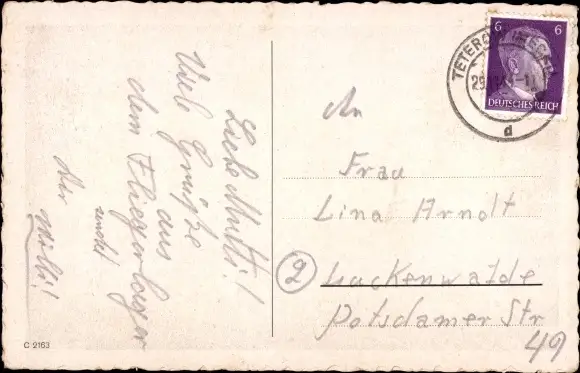 Liebe Mutti!
Viele Grüße
aus
dem Fliegerlager
sendet
Dir
Willi!
C 2163
6 6
DEUTSCHES REICH
TETEROW
d
An
Frau
Lina Arndt
2
Luckenwalde
Potsdamer Str
49